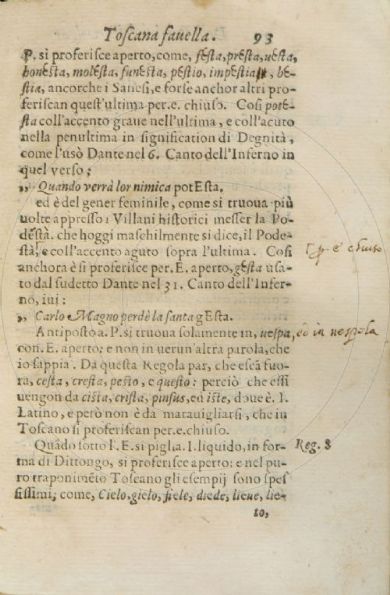 Toscana fauella. 93
P. si proferisce aperto, come, festa, presta, uesta,
honesta, molesta, funesta, pestio, impestia, be-
stia, ancorche i Sanesi, e forse anchor altri pro-
feriscan quest'ultima per.e. chiuso. Così pote-
sta coll'accento graue nell'ultima, e coll'acuto
nella penultima in signification di Degnità,
come l'usò Dante nel 6. Canto dell'Inferno in
quel verso;
„ Quando verrà lor nimica potEsta.
ed è del gener feminile, come si truoua più
uolte appresso i Villani historici messer la Po-
dèstà. che hoggi maschilmente si dice, il Pode-
stà, e coll'accento aguto sopra l'ultima. Così
anchora è si proferisce per. E. aperto, gesta usa-
to dal sudetto Dante nel 31. Canto dell'Infer-
no, iui:
„ Carlo Magno perdè la santa gEsta.
Antiposto a. P. si truoua solamente in, uespa,
con. E. aperto; e non in uerun'altra parola, che
io sappia. Da questa Regola par, che escā fuo-
ra, cesta, cresta, pesto, e questo: perciò che essi
uengon da cista, crista, pinsus, ed iste, doue è. I.
Latino, e però non è da marauigliarsi, che in
Toscano si proferiscan per.e.chiuso.
Quādo sotto l'. E. si piglia. I. liquido, in for-
ma di Dittongo, si proferisce aperto: e nel pu-
ro traponimēto Toscano gli esempij sono spes
sissimi; come, Cielo, gielo, fiele, diede, lieue, lie-
to,
è chiuso
in nespola
Reg. 8